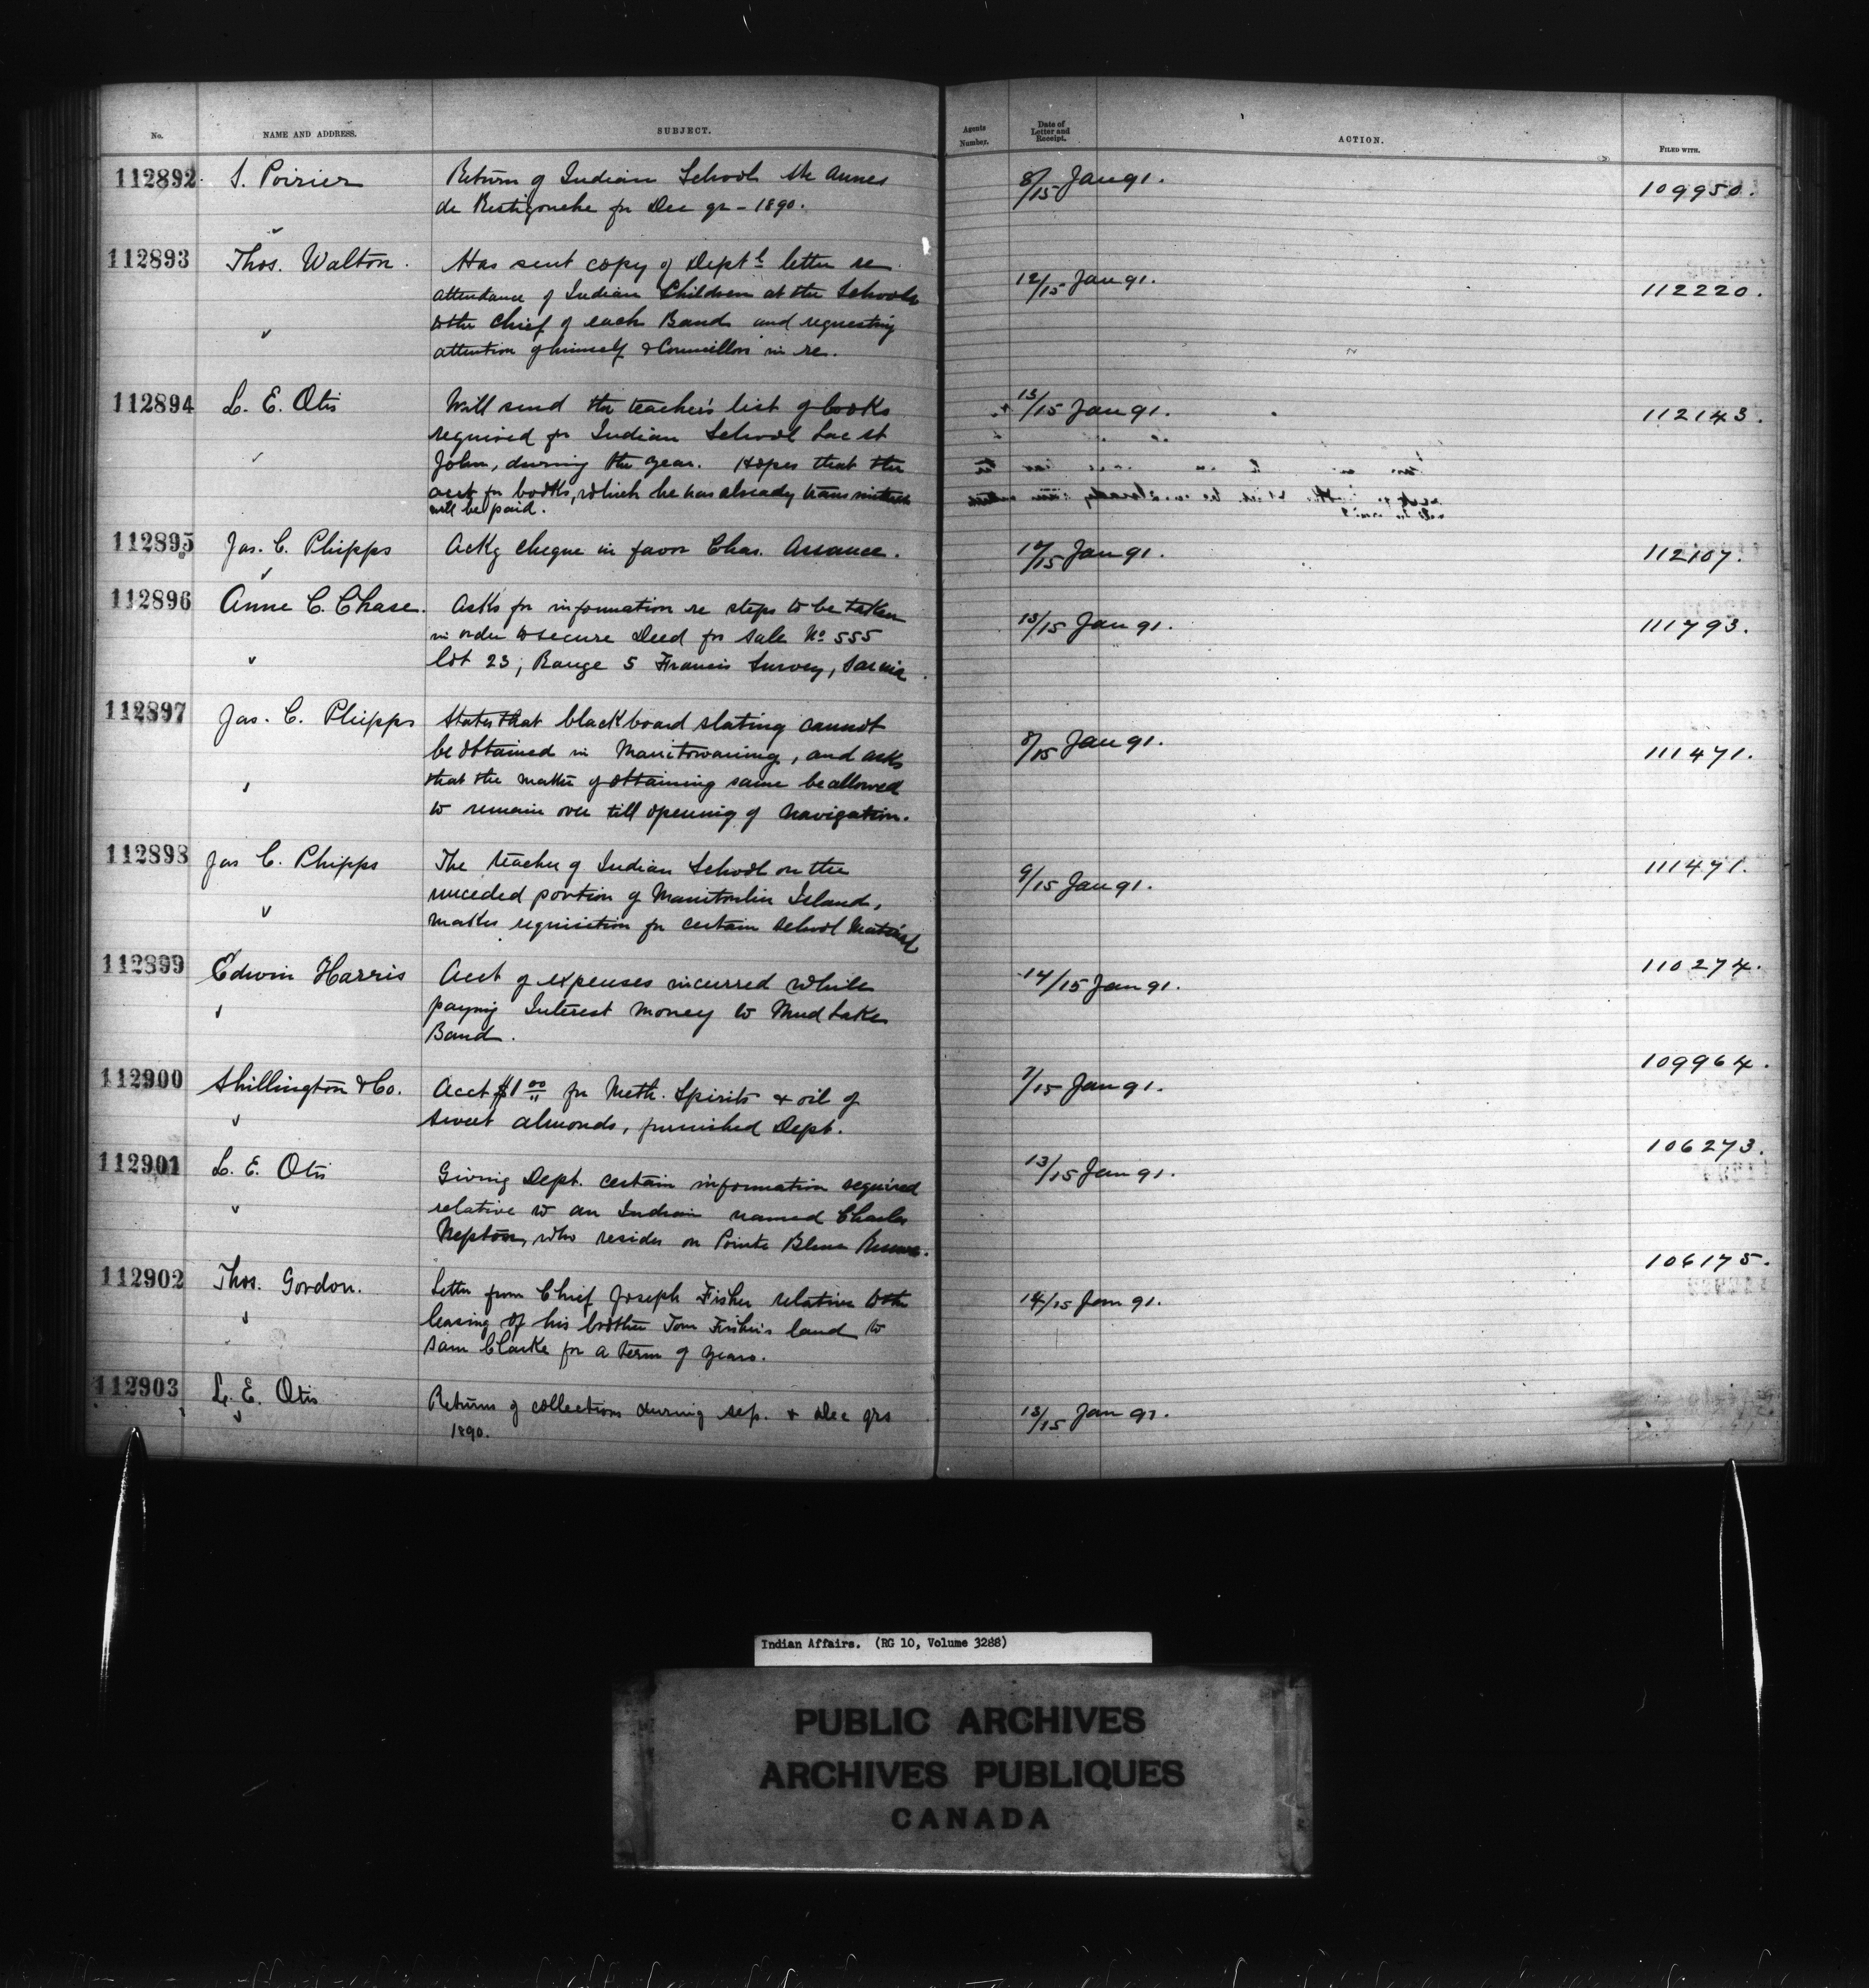 No. NAME AND ADDRESS. SUBJECT. Agents Number. Date of Letter and Receipt. ACTION. FILED WITH.
112892 S. Poirier Return of Indian School Ste Annes 8/15 Jan 91. 109950.
de Restigouche for Dec qr - 1890.
112893 Thos. Walton. Has sent copy of Deptl letter re 12/15 Jan 91. 112220.
attendance of Indian Children at the Schools
to the Chief of each Band and requesting
attention of himself & Councillors in re.
112894 L. E. Otis Will send the teacher's list of books 13/15 Jan 91. 112143.
required for Indian School Lac St
John, during the year. Hopes that the
acct for books, which he has already transmitted
will be paid.
112895 Jas. C. Phipps Ackg cheque in favor Chas. Assance. 12/15 Jan 91. 112107.
112896 Anne C. Chase. Asks for information re steps to be taken 13/15 Jan 91. 111793.
in order to secure Deed for sale No 555
lot 23, Range 5 Francis Survey, Sarnia.
112897 Jas. C. Phipps States that blackboard slating cannot 8/15 Jan 91. 111471.
be obtained in Manitowaning, and asks
that the matter of obtaining same be allowed
to remain over till opening of navigation.
112898 Jas C. Phipps The teacher of Indian School on the 9/15 Jan 91. 111471.
unceded portion of Manitoulin Island,
makes requisition for certain school Material
112899 Edwin Harris Acct of expenses incurred while 14/15 Jan 91. 110274.
paying Interest money to Mud Lake
Band.
112900 Shillington & Co. Acct $1 00 for Meth. Spirits & oil of 7/15 Jan 91. 109964.
sweet almonds, furnished Dept.
112901 L. E. Otis Giving Dept. certain information required 13/15 Jan 91. 106273.
relative to an Indian named Charles
Nepton, who resides on Pointe Bleue Reserve.
112902 Thos. Gordon. Letter from Chief Joseph Fisher relative to the 14/15 Jan 91. 106175.
leasing of his brother Tom Fisher's land to
Sam Clarke for a term of years.
112903 L. E. Otis Returns of collections during Sep. & Dec qrs 13/15 Jan 91.
1890.
Indian Affairs. (RG 10, Volume 3288)
PUBLIC ARCHIVES
ARCHIVES PUBLIQUES
CANADA